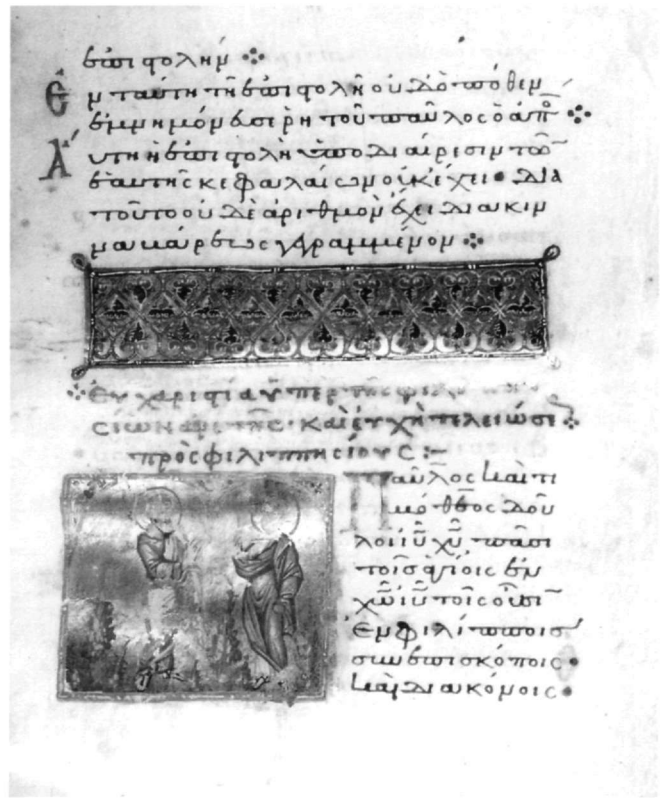 ἐπιστολήν
Ἐν ταύτῃ τῇ ἐπιστολῇ οὐδὲ πόθεν
ἐμνημόνευσε τοῦ παῦλος ὁ ἀπο
Αὕτη ἡ ἐπιστολὴ διαίρεσιν τοῦ
κεφαλαίων οὐκ ἔχει· Δια
τοῦτο οὐδὲ ἀριθμὸν ἔχει διὰ κιν
ναβάρεως γραμμένον
Εὐχαριστία ὑπὲρ τῆς
καὶ εὐχὴ τελειώσε
πρὸς φιλιππησίους :–
Παῦλος καὶ τι
μόθεος δοῦ
λοι ἰῦ χῦ πᾶσι
τοῖς ἁγίοις ἐν
χῶ ἰῦ τοῖς οὖσιν
Ἐν φιλίπποις
σὺν ἐπισκόποις
καὶ διακόνοις